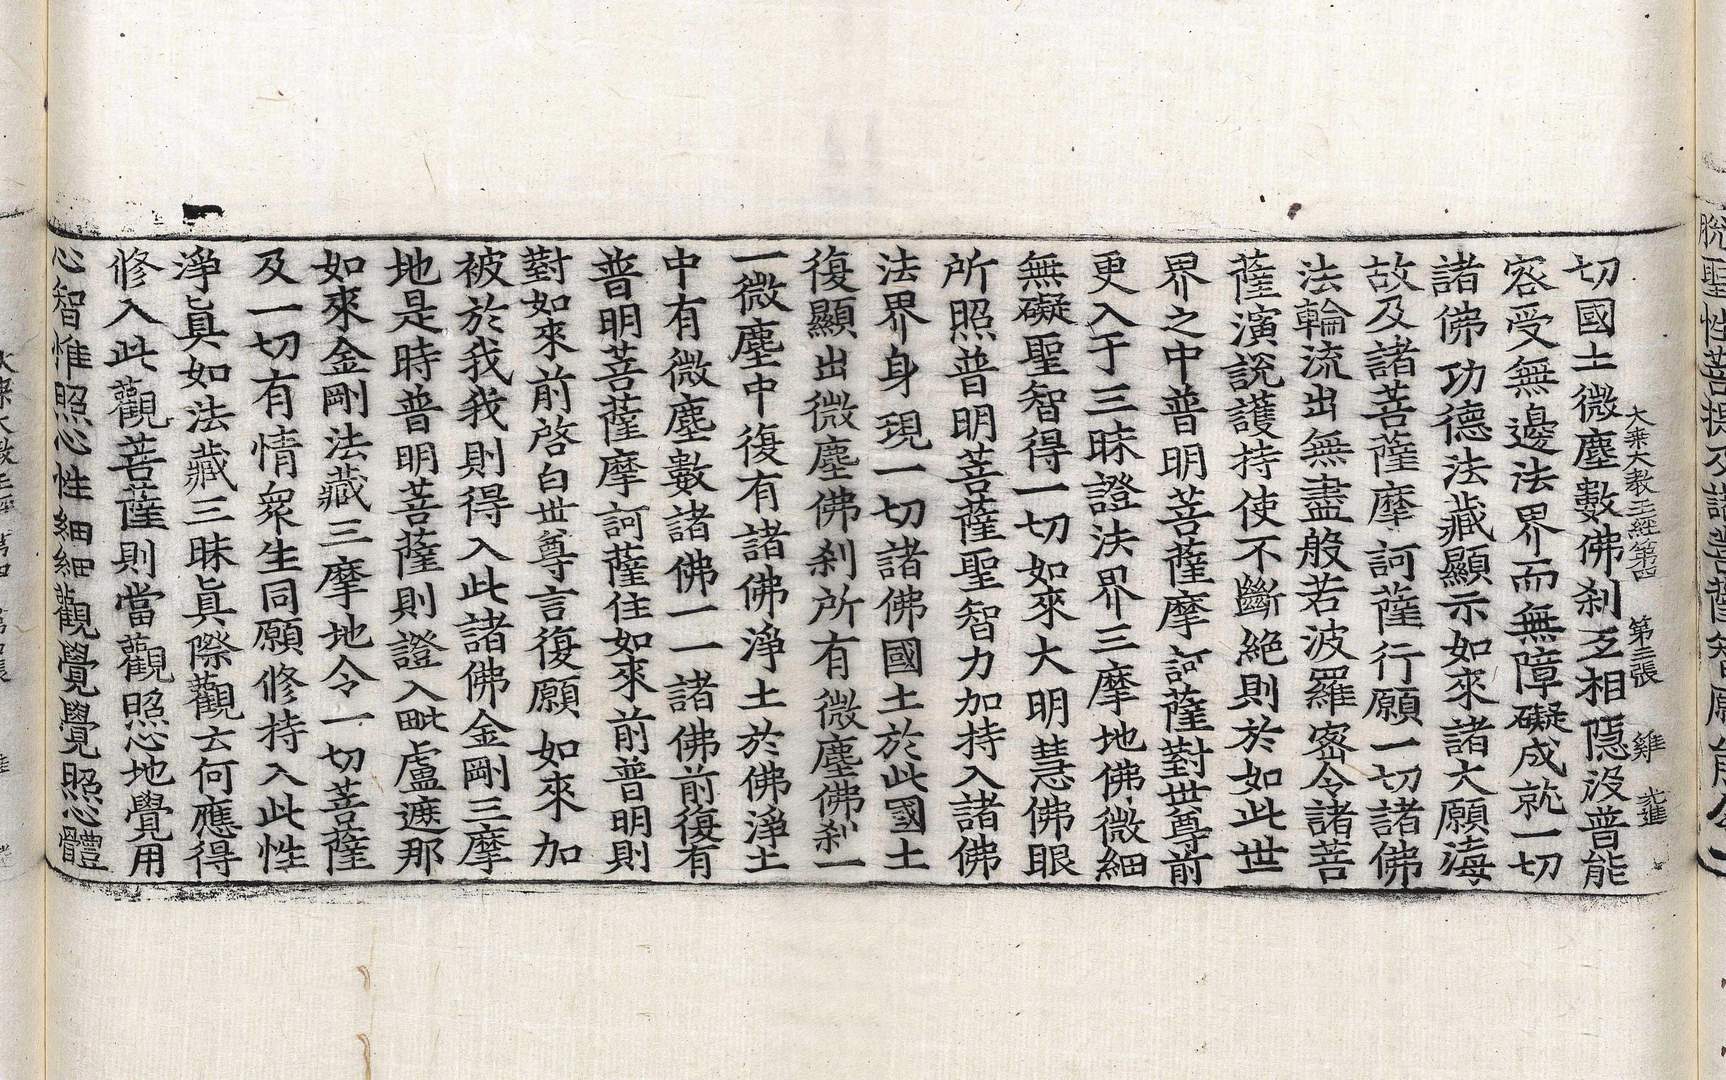 脫聖性菩提及諸菩薩智願能令一
大乘大教王經第四　第三張　雞
切國土微塵數佛刹互相隱沒普能
容受無邊法界而無障礙成就一切
諸佛功德法藏顯示如來諸大願海
故及諸菩薩摩訶薩行願一切諸佛
法輪流出無盡般若波羅蜜令諸菩
薩演說護持使不斷絕則於如此世
界之中普明菩薩摩訶薩對世尊前
更入于三昧證法界三摩地佛微細
無礙聖智得一切如來大明慧佛眼
所照普明菩薩聖智力加持入諸佛
法界身現一切諸佛國土於此國土
復顯出微塵佛刹所有微塵佛刹一
一微塵中復有諸佛淨土於佛淨土
中有微塵數諸佛一一諸佛前復有
普明菩薩摩訶薩住如來前普明則
對如來前啓白世尊言復願如來加
被於我我則得入此諸佛金剛三摩
地是時普明菩薩則證入毗盧遮那
如來金剛法藏三摩地令一切菩薩
及一切有情衆生同願修持入此性
淨眞如法藏三昧眞際觀云何應得
修入此觀菩薩則當觀照心地覺用
心智惟照心性細細觀覺覺照心體
大乘大教王經第四